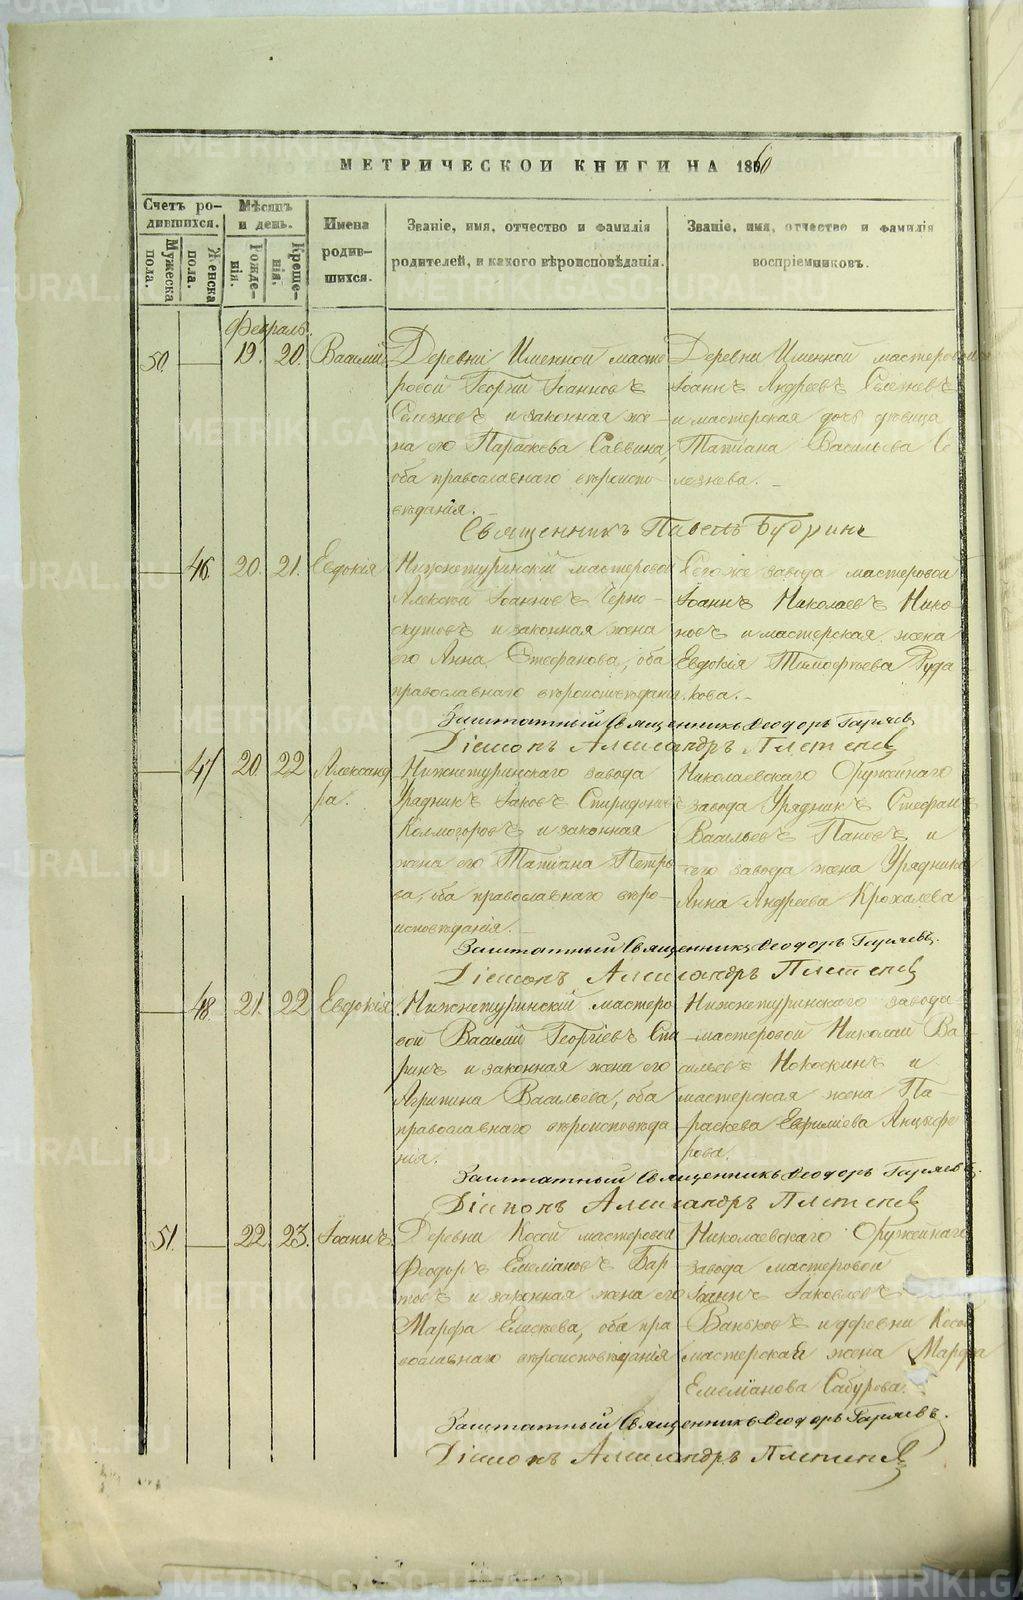 МЕТРИЧЕСКОЙ КНИГИ НА 1860
Счетъ ро-
дившихся.
Мѣсяцъ
и день.
Имена
родив-
шихся.
Званіе, имя, отчество и фамилія
родителей, и какого вѣроисповѣданія.
Званіе, имя, отчество и фамилія
воспріемниковъ.
Мужеска
пола.
Женска
пола.
Рожде-
нія.
Креще-
нія.
Февраль
50. 19. 20. Василій
Деревни Именной масте-
ровой Георгій Іоанновъ
Селезневъ и законная же-
на его Параскева Саввина,
оба православнаго вѣроиспо-
вѣданія.
Деревни Именной мастеровой
Іоаннъ Андреевъ Селезневъ
и мастерская дочь дѣвица
Татіана Васильева Се
лезнева.
Священникъ Павелъ Будринъ
46. 20. 21. Евдокія
Нижнетуринскій мастеровой
Алексѣй Іоанновъ Черно-
скутовъ и законная жена
его Анна Стефанова, оба
православнаго вѣроисповѣданія.
Сего же завода мастеровой
Іоаннъ Николаевъ Нико-
новъ и мастерская жена
Евдокія Тимофѣева Руда
кова.
Заштатный Священникъ Ѳеодоръ Гаряевъ
Діаконъ Александръ Плетеневъ
47 20. 22 Александ
ра.
Нижнетуринскаго завода
Урядникъ Іаковъ Спиридоновъ
Колмогоровъ и законная
жена его Татіана Петро
ва, оба православнаго вѣро-
исповѣданія.
Николаевскаго Оружейнаго
завода Урядникъ Стефанъ
Васильевъ Пановъ и
сего завода жена Урядника
Анна Андреева Крохалева
Заштатный Священникъ Ѳеодоръ Гаряевъ.
Діаконъ Александръ Плетеневъ
48. 21. 22 Евдокія
Нижнетуринскій мастеро
вой Василій Георгіевъ Спи
ринъ и законная жена его
Агрипина Васильева, оба
православнаго вѣроисповѣда
нія.
Нижнетуринскаго завода
мастеровой Николай Ва
сильевъ и
мастерская жена Па-
раскева Анцыфе
рова.
Заштатный Священникъ Ѳеодоръ Гаряевъ.
Діаконъ Александръ Плетеневъ
51. 22. 23. Іоаннъ
Деревни Косой мастеровой
Ѳеодоръ Емеліановъ Бар
товъ и законная жена его
Марфа Елисѣева, оба пра
вославнаго вѣроисповѣданія
Николаевскаго Оружейнаго
завода мастеровой
Іоаннъ Іаковлевъ
Ваньковъ и деревни Косой
мастерская жена Марфа
Емеліанова Сабурова.
Заштатный Священникъ Ѳеодоръ Гаряевъ.
Діаконъ Александръ Плетеневъ
METRIKI.GASO-URAL.RU